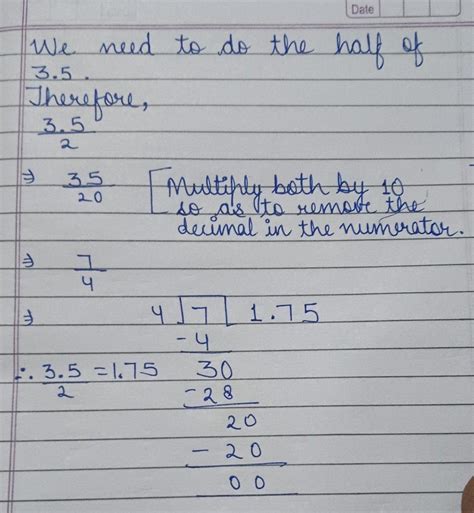 Date
We need to do the half of
3.5.
Therefore,
3.5/2
⇒ 35/20 [Multiply both by 10
so as to remove the
decimal in the numerator.
⇒ 7/4
⇒ 4 | 7 | 1.75
-4
∴ 3.5/2 = 1.75 30
-28
20
- 20
00